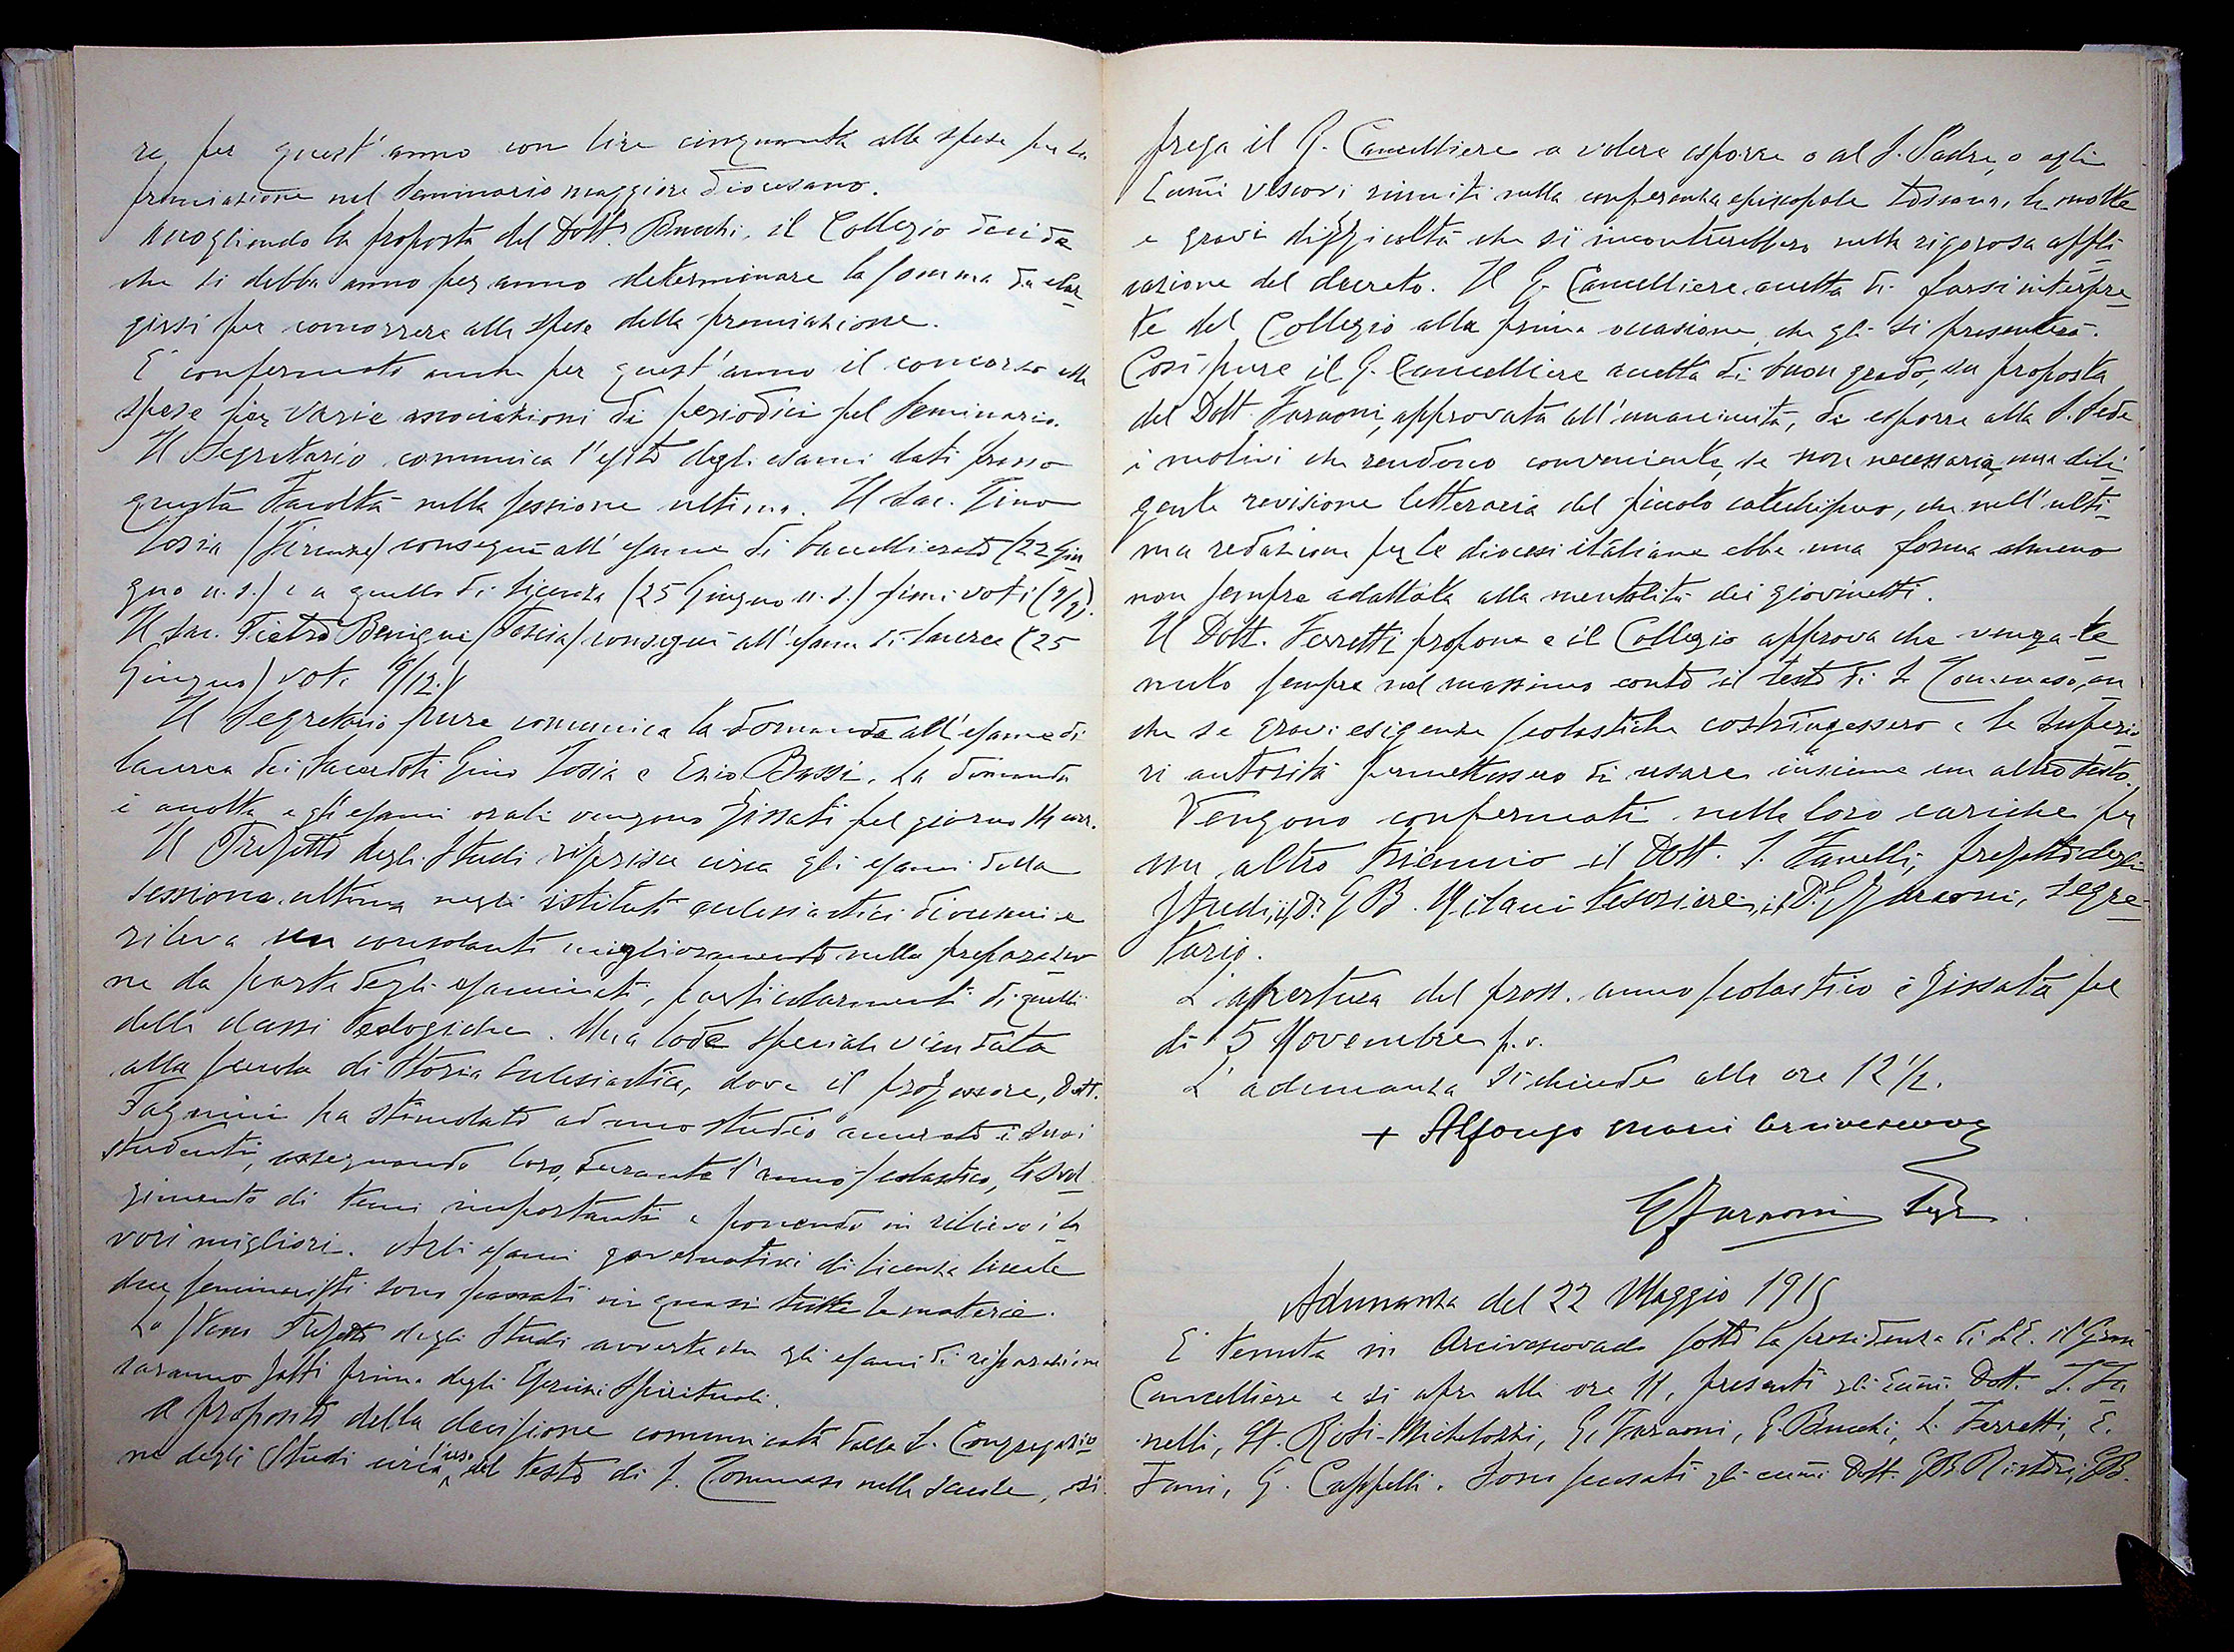 re, per quest'anno con lire cinquanta alle spese per la
premiazione nel Seminario maggiore diocesano.
Accogliendo la proposta del Dott. Bucchi, il Collegio decide
che si debba anno per anno determinare la somma da elar
girsi per concorrere alle spese della premiazione.
È confermato anche per quest'anno il concorso alle
spese per varie associazioni di periodici pel Seminario.
Il Segretario comunica l'esito degli esami dati presso
questa Facoltà nella sessione ultima. Il Sac. Gino
(Firenze) conseguì all'esame di baccellierato (22 Giu
gno u. s.) e a quello di licenza (25 Giugno u. s.) pieni voti (9/9).
Il Sac. Pietro Benigni (Pescia) conseguì all'esame di laurea (25
Giugno) voti 9/12.
Il Segretario pure comunica la domanda all'esame di
laurea dei Sacerdoti Gino e Enio Bassi. La domanda
è accolta e gli esami orali vengono fissati pel giorno 14 corr.
Il Prefetto degli Studi riferisce circa gli esami della
sessione ultima negli istituti ecclesiastici diocesani e
rileva un consolante miglioramento nella preparazio
ne da parte degli esaminati, particolarmente di quelli
delle classi teologiche. Una lode speciale vien data
alla scuola di Storia Ecclesiastica, dove il professore, Dott.
Fagnini ha stimolato ad uno studio accurato i suoi
studenti, assegnando loro, durante l'anno scolastico, lo svol
gimento di temi importanti e ponendo in rilievo i la
vori migliori. Agli esami governativi di licenza liceale
due seminaristi sono passati in quasi tutte le materie.
Lo stesso Prefetto degli Studi avverte che gli esami di riparazione
saranno fatti prima degli Esercizi Spirituali.
A proposito della decisione comunicata dalla S. Congregazio
ne degli Studi circa l'uso del testo di S. Tommaso nelle scuole, si
prega il G. Cancelliere a volere esporre o al S. Padre, o agli
Ecc.mi Vescovi riuniti nella conferenza episcopale toscana, le molte
e gravi difficoltà che si incontrerebbero nella rigorosa appli
cazione del decreto. Il G. Cancelliere accetta di farsi interpre
te del Collegio alla prima occasione, che gli si presenterà.
Così pure il G. Cancelliere accetta di buon grado, su proposta
del Dott. Faraoni, approvata all'unanimità, di esporre alla S. Sede
i motivi che rendono conveniente, se non necessaria, una dili
gente revisione letteraria del piccolo catechismo, che nell'ulti
ma redazione per le diocesi italiane ebbe una forma almeno
non sempre adattata alla mentalità dei giovinetti.
Il Dott. Ferretti propone e il Collegio approva che venga te
nuto sempre nel massimo conto il testo di S. Tommaso, an
che se gravi esigenze scolastiche costringessero e le superio
ri autorità permettessero di usare insieme un altro testo.
Vengono confermati nelle loro cariche per
un altro triennio il Dott. S. Fanelli, prefetto degli
Studi, il Dr. GB. Milani tesoriere, il Dr. G Faraoni, segre-
tario.
L'apertura del pross. anno scolastico è fissata pel
dì 5 Novembre p. v.
L'adunanza si chiude alle ore 12 1/2.
+ Alfonso Maria Arcivescovo
G Faraoni Segr.
Adunanza del 22 Maggio 1915
È tenuta in Arcivescovado sotto la presidenza di S.E. il Gran
Cancelliere e si apre alle ore 11, presenti gli Ecc.mi Dott. S. Fa
nelli, St. Rosi-Michelozzi, G. Faraoni, G. Bucchi, L. Ferretti, E.
Fani, G. Cappelli. Sono scusati gli ecc.mi Dott. GB Ristori, GB.